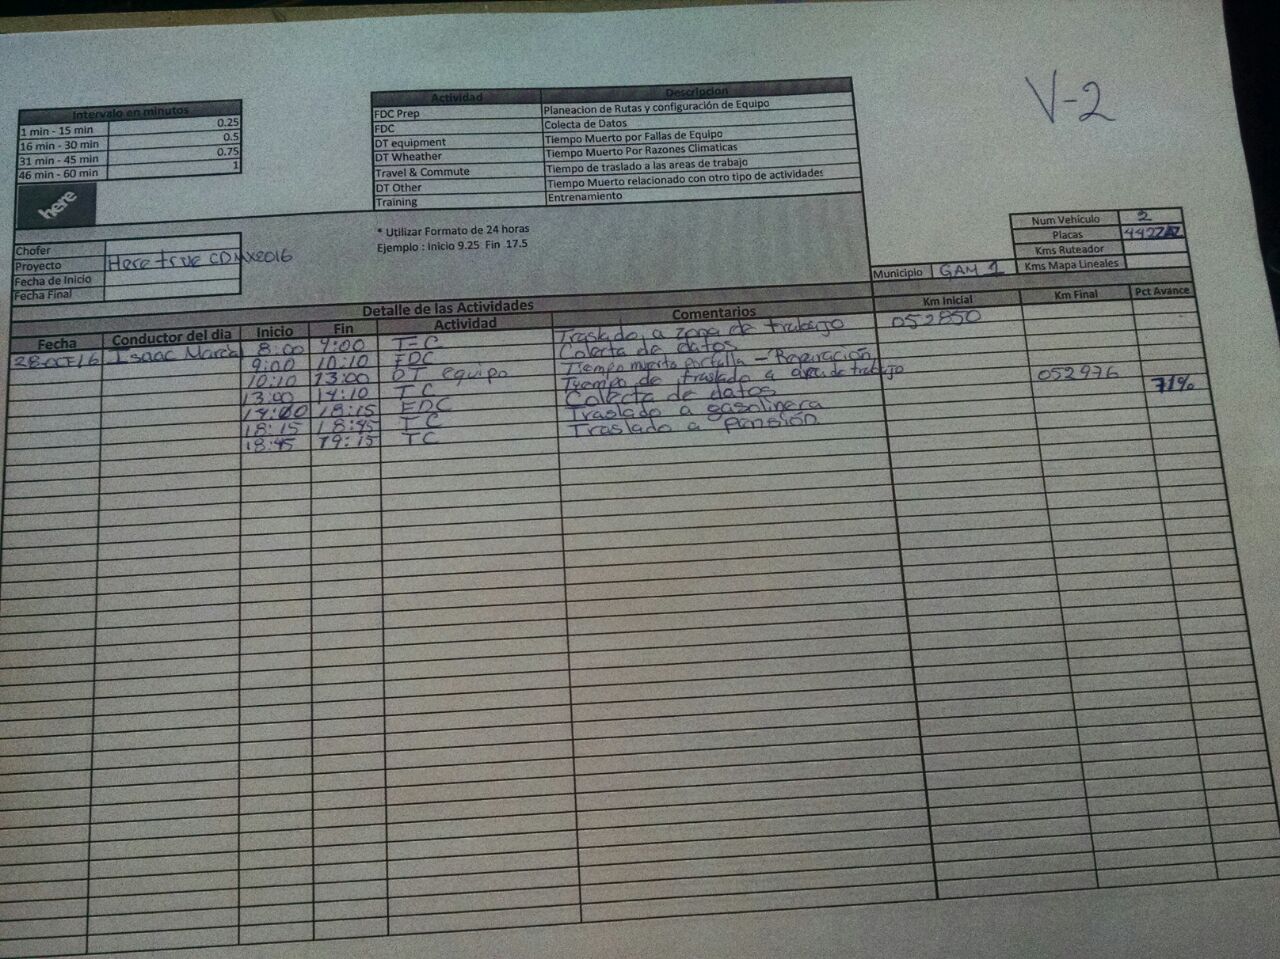 V-2
Intervalo en minutos
1 min - 15 min 0.25
16 min - 30 min 0.5
31 min - 45 min 0.75
46 min - 60 min 1
Actividad Descripcion
FDC Prep Planeacion de Rutas y configuración de Equipo
FDC Colecta de Datos
DT equipment Tiempo Muerto por Fallas de Equipo
DT Wheather Tiempo Muerto Por Razones Climaticas
Travel & Commute Tiempo de traslado a las areas de trabajo
DT Other Tiempo Muerto relacionado con otro tipo de actividades
Training Entrenamiento
here
* Utilizar Formato de 24 horas
Ejemplo : Inicio 9.25 Fin 17.5
Chofer
Proyecto Here true CDMX2016
Fecha de Inicio
Fecha Final
Num Vehículo 2
Placas
Kms Ruteador
Municipio GAM 1 Kms Mapa Lineales
Detalle de las Actividades
Fecha Conductor del dia Inicio Fin Actividad Comentarios Km Inicial Km Final Pct Avance
28-OCT-16 Isaac 8:00 9:00 T-C Traslado a zona de trabajo 052850
9:00 10:10 FDC Colecta de datos
10:10 13:00 DT equipo Tiempo muerto pantalla - Reparación
13:00 14:10 TC Tiempo de traslado a area de trabajo
14:10 18:15 FDC Colecta de datos 052976 71%
18:15 18:45 TC Traslado a gasolinera
18:45 19:15 TC Traslado a pensión